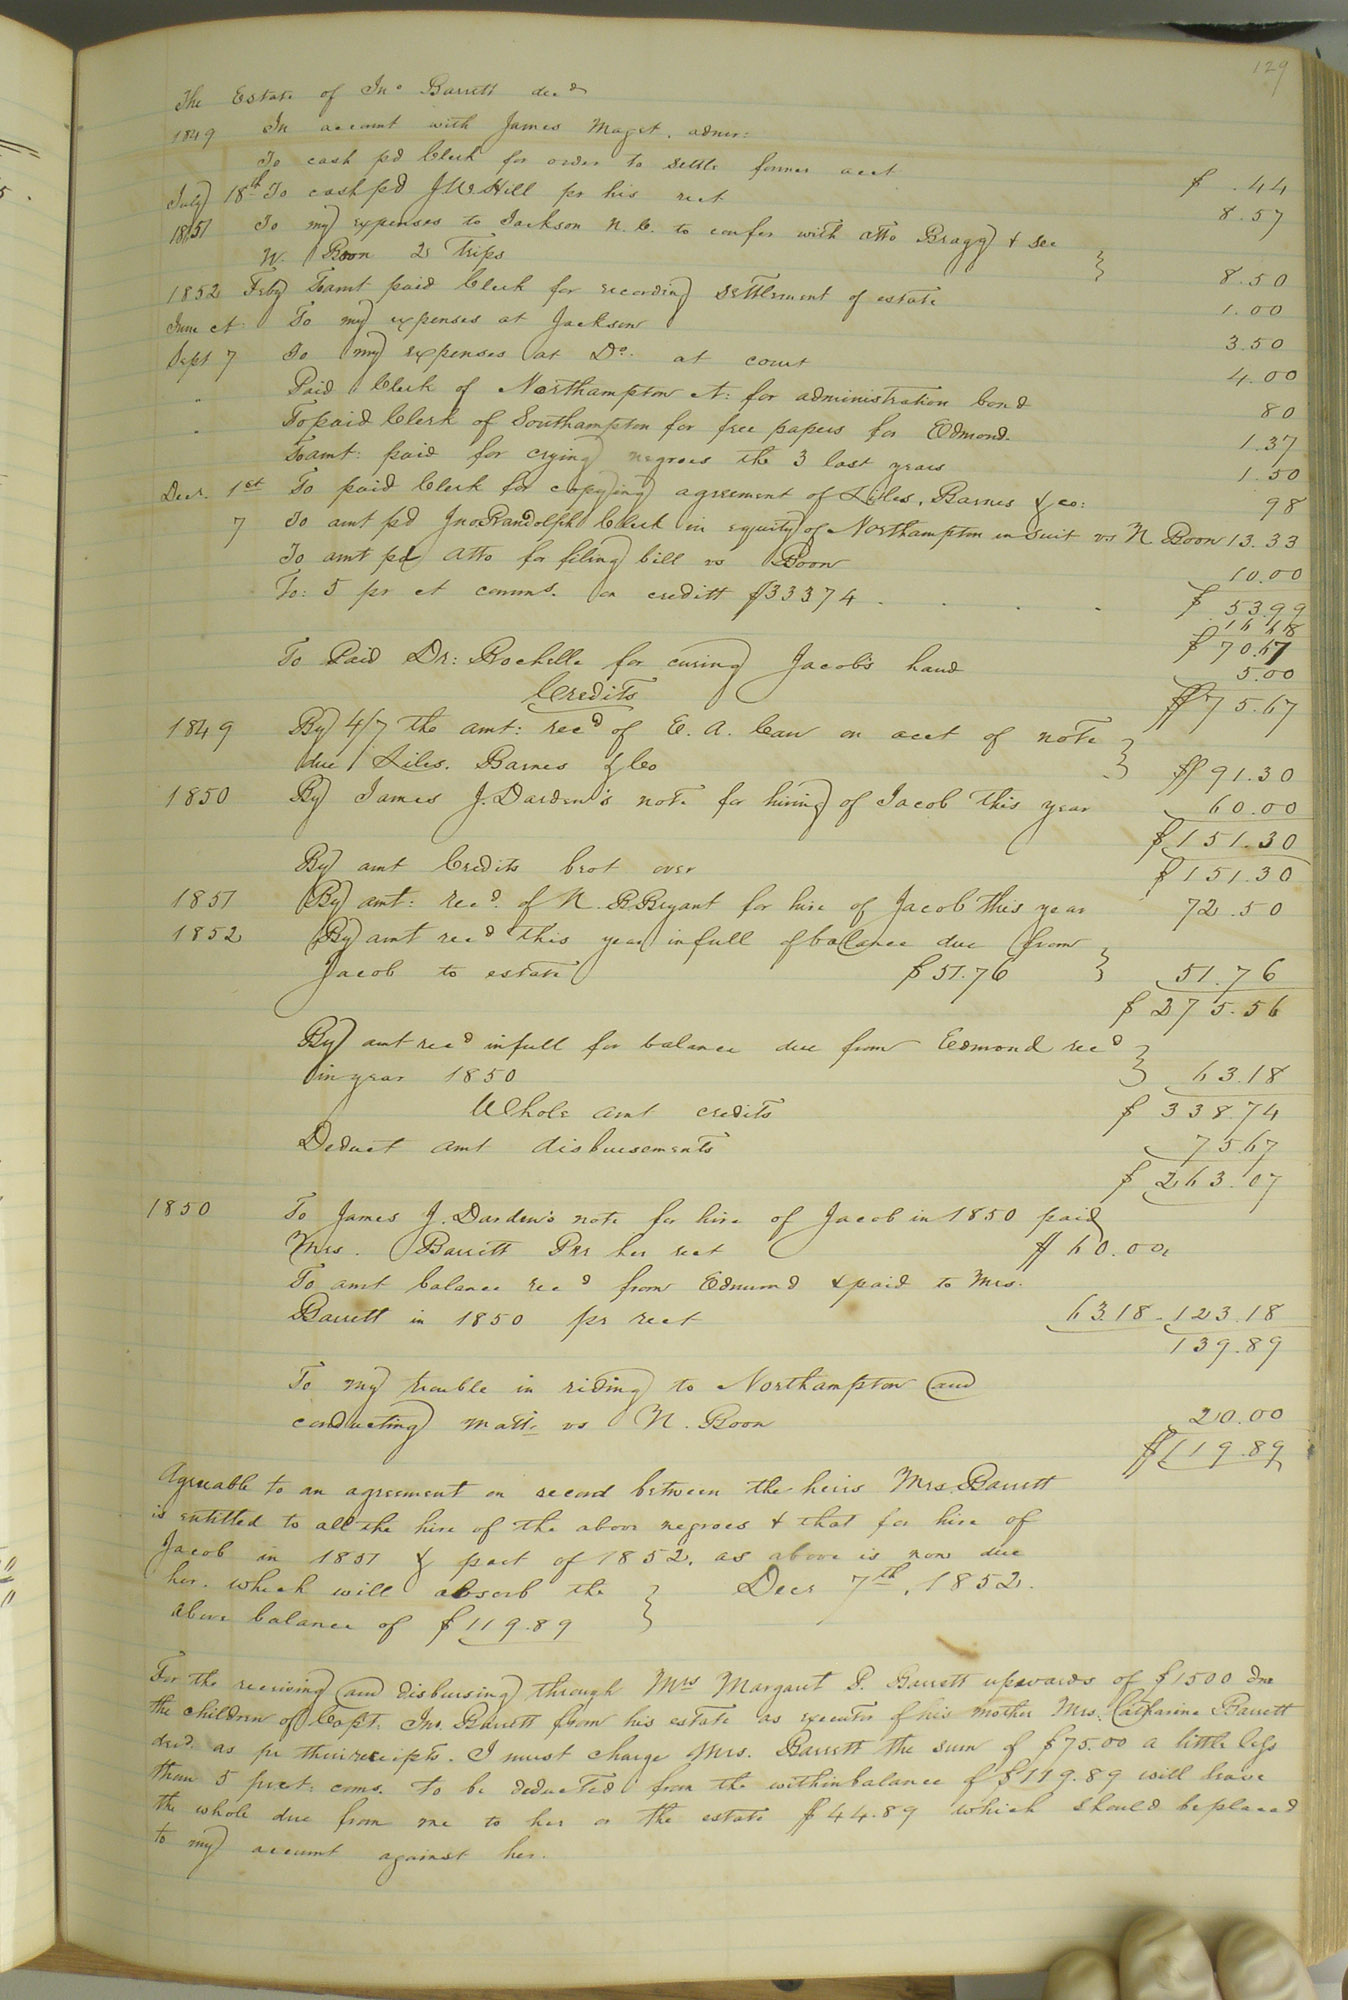 129
The Estate of Jno Barrett decd
1849 In account with James Maget, admr:
To cash pd Clerk for order to settle former acct $ .44
July 18th To cash pd J W Hill pr his rect 8.57
1851 To my expenses to Jackson N. C. to confer with atto Bragg & see
N. Boon 2 Trips 8.50
1852 Feby To amt paid Clerk for recording settlement of estate 1.00
June ct To my expenses at Jackson 3.50
Sept 7 To my expenses at Do. at court 4.00
" Paid Clerk of Northampton Ct: for administration bond 80
" To paid Clerk of Southampton for free papers for Edmond. 1.37
To amt: paid for crying negroes the 3 last years 1.50
Decr. 1st To paid Clerk for copying agreement of Liles, Barnes & co: 98
7 To amt pd Jno Randolph Clerk in equity of Northampton in suit vs N Boon 13.33
To amt pd Atto for filing bill vs Boon 10.00
To: 5 pr ct comms. on creditt $33374 . . . . $ 53.99
16 68
$ 70.67
To Paid Dr: Rochelle for curing Jacob's hand 5.00
Credits $75.67
1849 By 4/7 the amt: recd of E. A. Caw on acct of note
due Liles. Barnes & Co $91.30
1850 By James J. Darden's note for hiring of Jacob this year 60.00
$151.30
By amt Credits brot over $151.30
1851 By amt: recd. of N. B Bryant for hire of Jacob this year 72.50
1852 By amt recd this year in full of balance due from
Jacob to estate $51.76 51.76
$ 275.56
By amt recd in full for balance due from Edmond recd
in year 1850 63.18
Whole amt credits $ 338.74
Deduct amt disbursements 75.67
$ 263.07
1850 To James J. Darden's note for hire of Jacob in 1850 paid
Mrs. Barrett Per her rect $60.00
To amt balance recd from Edmund & paid to Mrs.
Barrett in 1850 pr rect 63.18 - 123.18
139.89
To my trouble in riding to Northampton and
conducting matt. vs N. Boon 20.00
$119.89
Agreeable to an agreement on record between the heirs Mrs. Barrett
is entitled to all the hire of the above negroes & that for hire of
Jacob in 1851 & part of 1852, as above is now due
her. which will absorb the Decr 7th, 1852.
above balance of $119.89
For the receiving and disbursing through Mrs Margaret P. Barrett upwards of $1500 due
the children of Capt. Jno. Barrett from his estate as executor of his mother Mrs. Catharine Barrett
decd. as pr their receipts. I must charge Mrs. Barrett the sum of $75.00 a little less
than 5 pr ct: coms. to be deducted from the within balance of $119.89 will leave
the whole due from me to her or the estate $44.89 which should be placed
to my account against her.